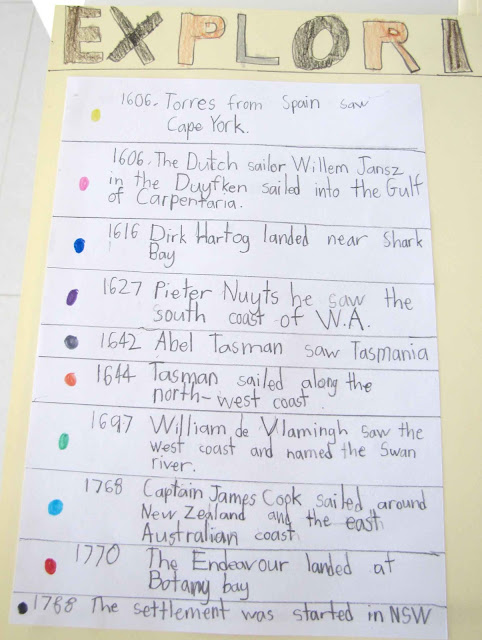 EXPLORI
1606. Torres from Spain saw
Cape York.
1606. The Dutch sailor Willem Jansz
in the Duyfken sailed into the Gulf
of Carpentaria.
1616 Dirk Hartog landed near Shark
Bay
1627 Pieter Nuyts he saw the
south coast of W.A.
1642 Abel Tasman saw Tasmania
1644 Tasman sailed along the
north-west coast
1697 William de Vlamingh saw the
west coast and named the Swan
river.
1768 Captain James Cook sailed around
New Zealand and the east
Australian coast
1770 The Endeavour landed at
Botany bay
1788 The settlement was started in NSW